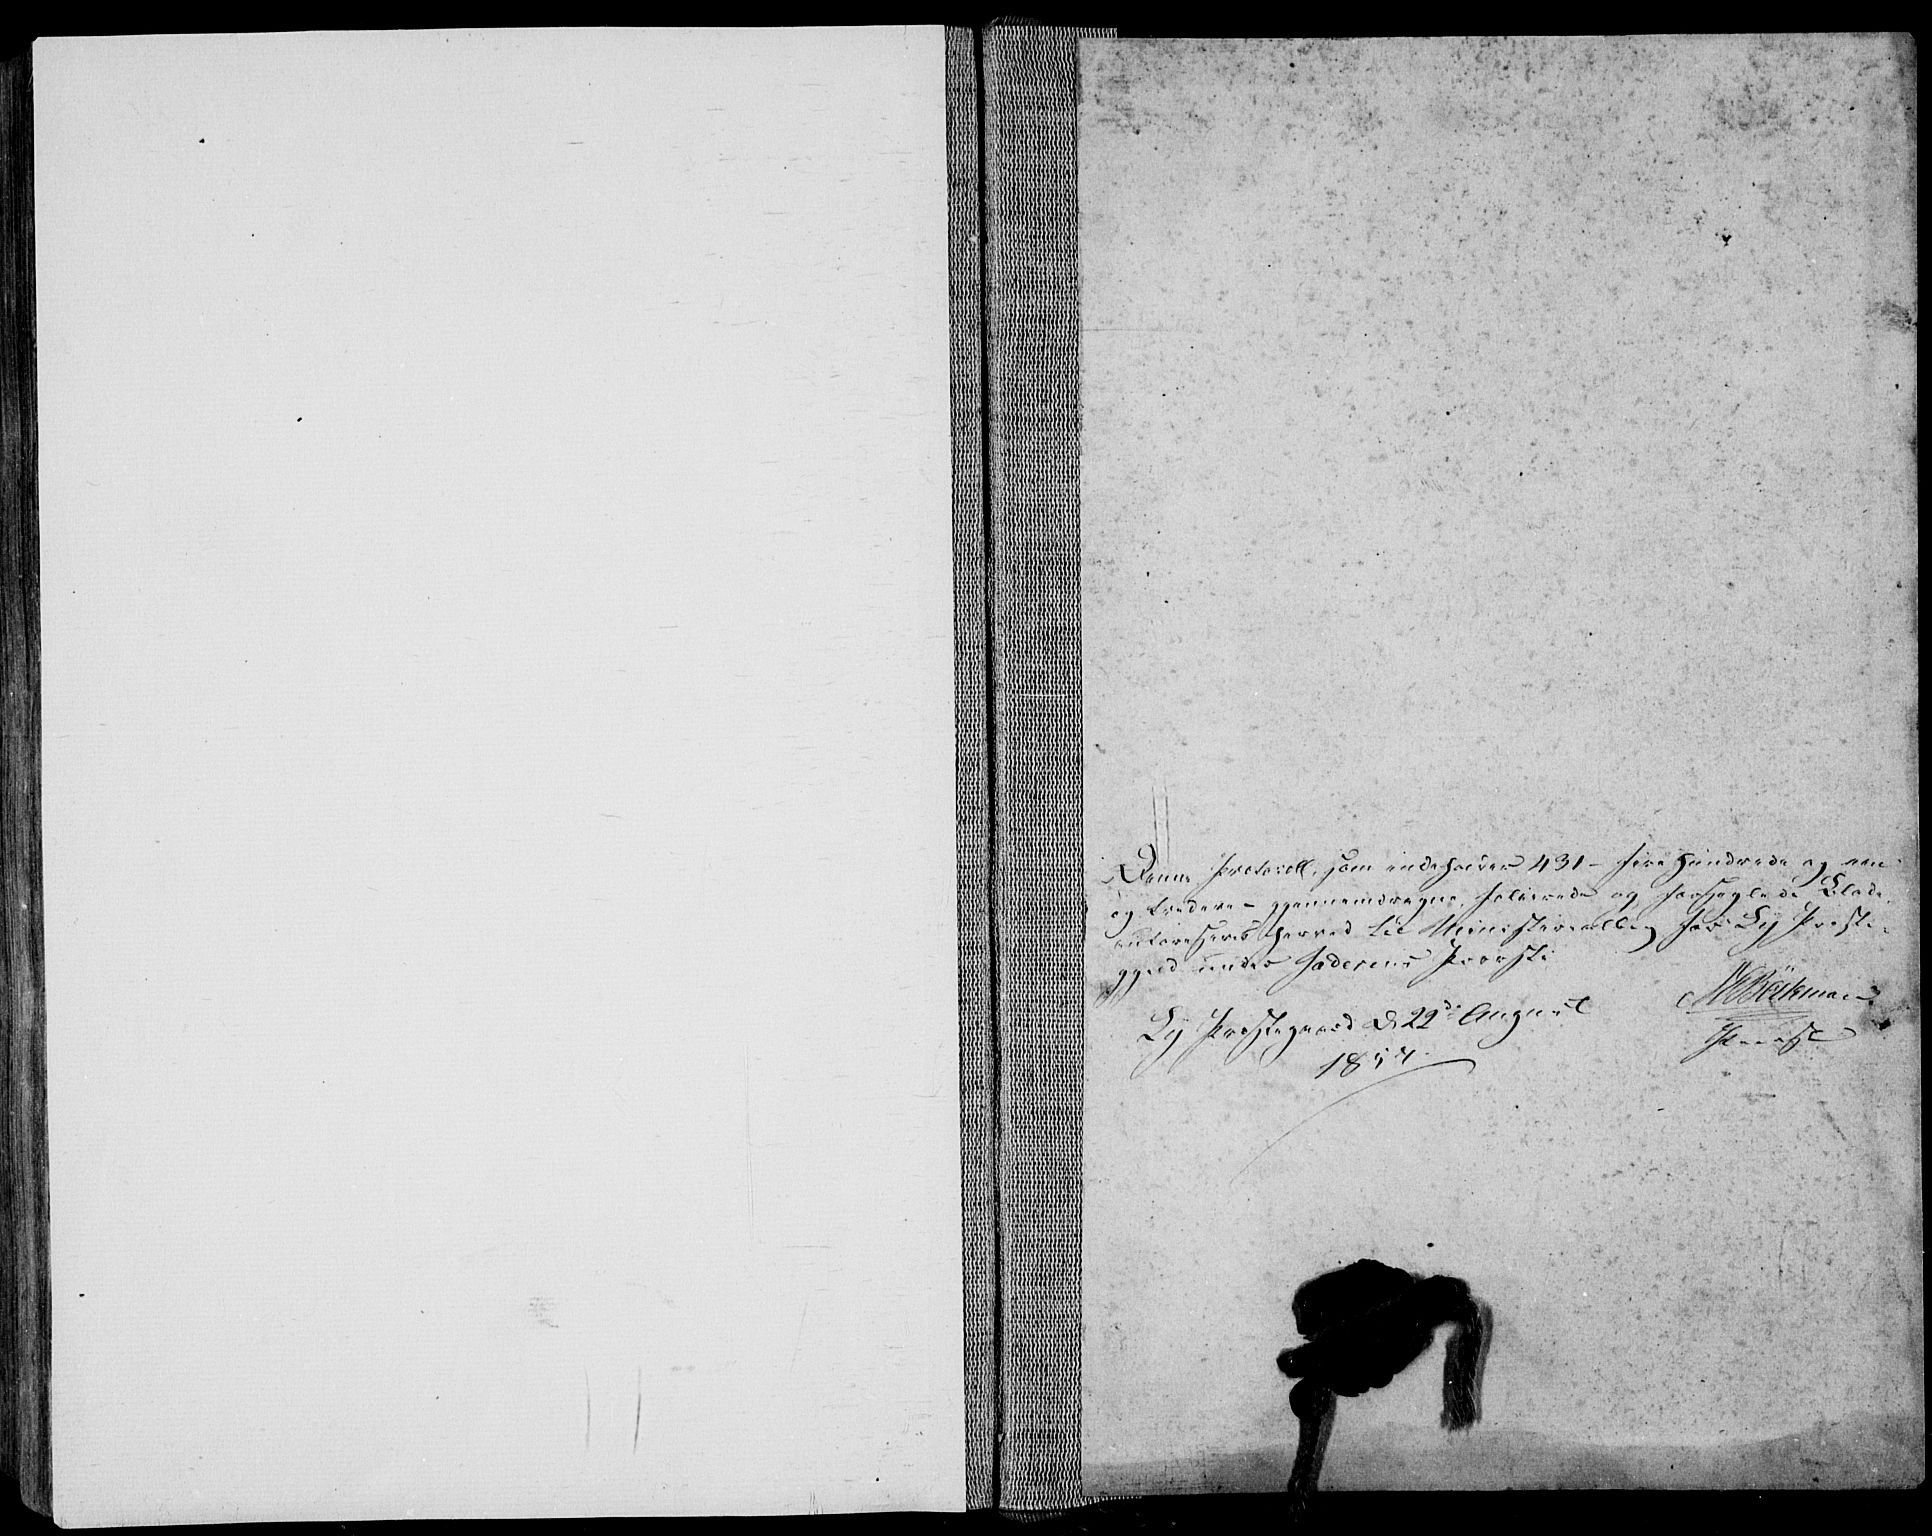 Denne Protocoll, som indeholder 431 – fire Hundrede og een
og tredeve – gjennemdragne, folierede og forseglede Blade,
autoriseres herved til Ministerialbog for Ly Præste-
gjeld under Jæderens Provsti
Ly Præstegaard d. 22de August
1854
Provst